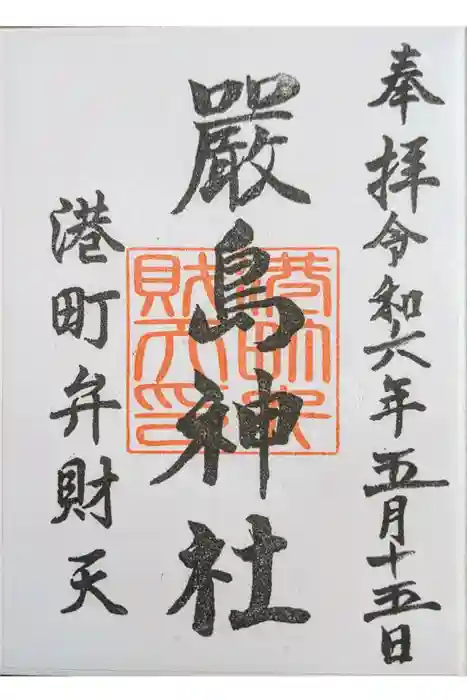 奉拝令和六年五月十五日
嚴島神社
港町弁財天